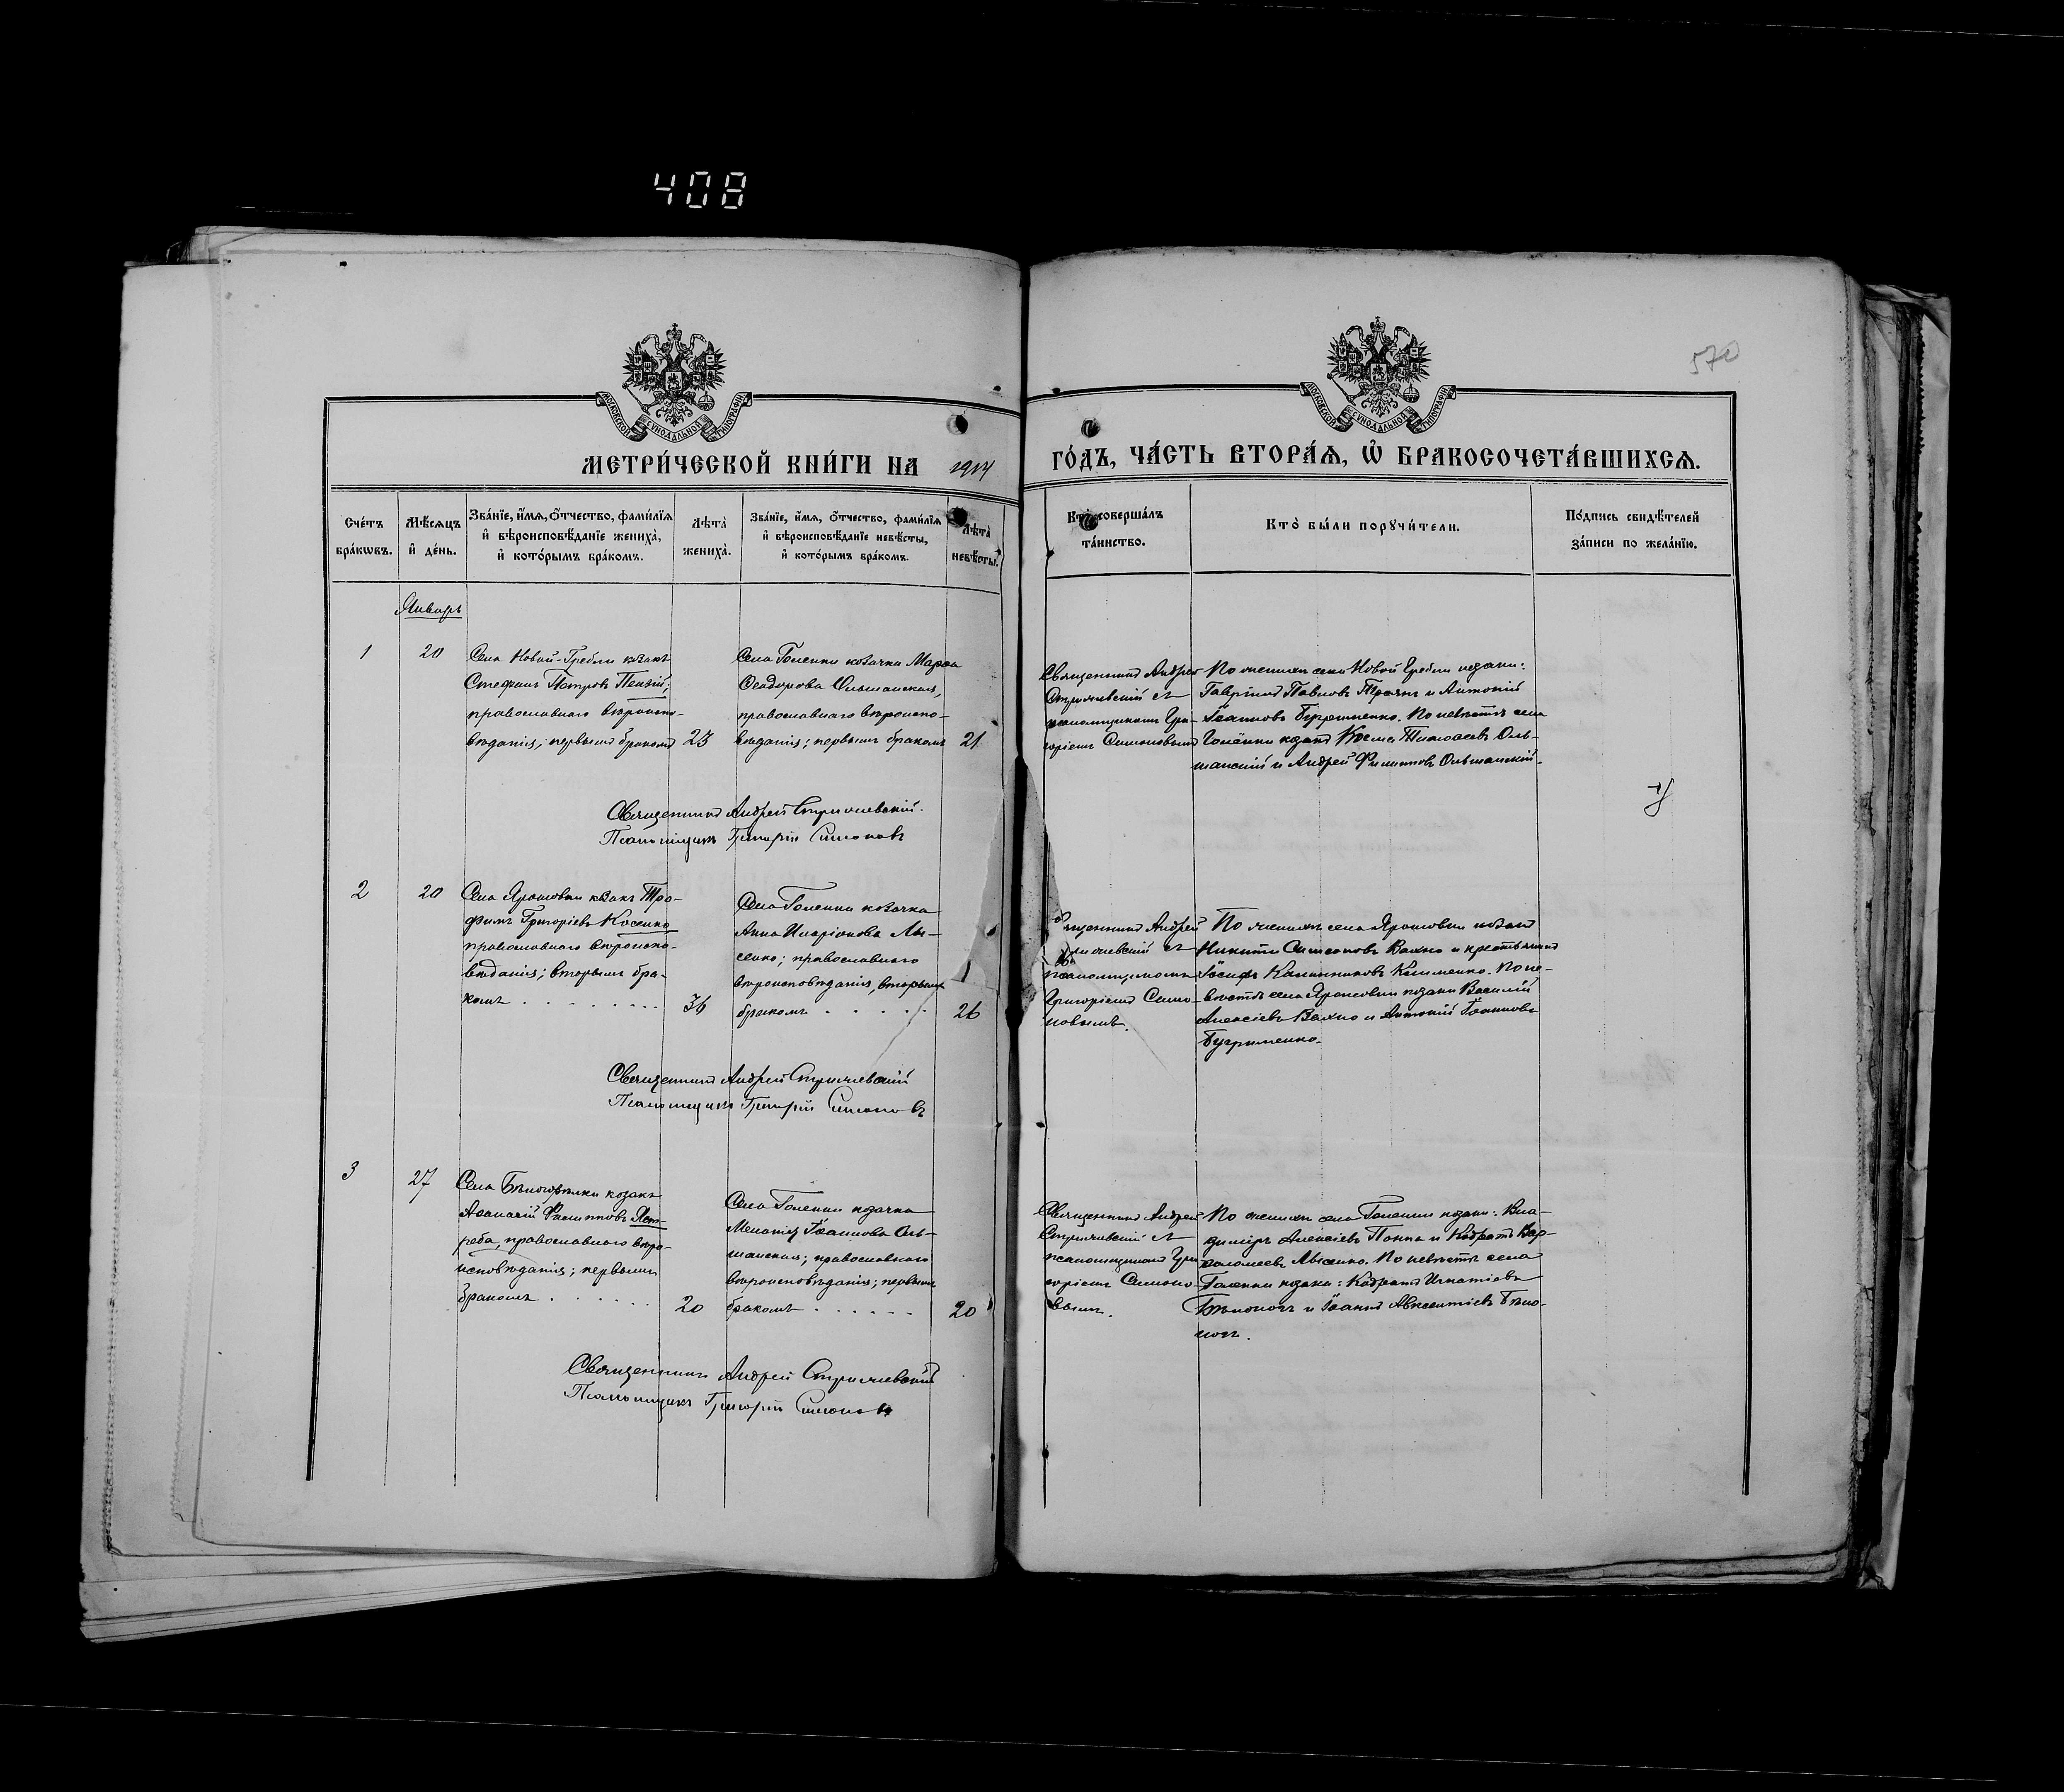 408
570
МОСКОВСКОЙ СѴНОДАЛЬНОЙ ТИПОГРАФІИ
МОСКОВСКОЙ СѴНОДАЛЬНОЙ ТИПОГРАФІИ
МЕТРИ́ЧЕСКОЙ КНИ́ГИ НА 1914 ГО́ДЪ, ЧА́СТЬ ВТОРА́Ѧ, Ѡ҆ БРАКОСОЧЕТА́ВШИХСѦ.
Сче́тъ
бра́кѡвъ.
Мѣ́сѧцъ
и҆ де́нь.
Зва́нїе, и҆́мѧ, ѻ҆́тчество, фами́лїѧ
и҆ вѣроисповѣ́данїе жениха̀,
и҆ кото́рымъ бра́комъ.
Лѣта̀
жениха̀.
Зва́нїе, и҆́мѧ, ѻ҆́тчество, фами́лїѧ
и҆ вѣроисповѣ́данїе невѣ́сты,
и҆ кото́рымъ бра́комъ.
Лѣта̀
невѣ́сты.
Кто̀ соверша́лъ
та́инство.
Кто̀ бы́ли порꙋчи́тели.
По́дпись свидѣ́телей
за́писи по жела́нїю.
Январь
1
20
Села Новой-Гребли козакъ
Стефанъ Петровъ
православнаго вѣроиспо-
вѣданія; первымъ бракомъ
23
Села Голенки козачка Марѳа
Ѳеодорова Ольшанская,
православнаго вѣроиспо-
вѣданія; первымъ бракомъ
21
Священникъ Андрей
съ
псаломщикомъ Гри-
горіемъ Симоновымъ
По женихѣ села Новой Гребли козаки:
Гавріилъ Павловъ и Антоній
Іоанновъ Бугрименко. По невѣстѣ села
Голенки козаки Косма Тимоѳеевъ Оль-
шанскій и Андрей Филипповъ Ольшанскій.
Священникъ Андрей
Псаломщикъ Григорій Симоновъ
2
20
Села Ярошовки козакъ Тро-
фимъ Григоріевъ Косенко
православнаго вѣроиспо-
вѣданія; вторымъ бра-
комъ
36
Села Голенки козачка
Анна Иларіонова Лы-
сенко; православнаго
вѣроисповѣданія, вторымъ
бракомъ
26
Священникъ Андрей
съ
псаломщикомъ
Григоріемъ Симо-
новымъ.
По женихѣ села Ярошовки козакъ
Никита Симеоновъ Вахно и крестьянинъ
Іосифъ Калинниковъ Клименко. По не-
вѣстѣ села Ярошовки козаки Василій
Алексіевъ Вахно и Антоній Іоанновъ
Бугрименко.
Священникъ Андрей
Псаломщикъ Григорій Симоновъ
3
27
Села Бѣлогорѣлки козакъ
Аѳанасій Филипповъ Яст-
реба, православнаго вѣро-
исповѣданія; первымъ
бракомъ
20
Села Голенки козачка
Меланія Іоаннова Оль-
шанская; православнаго
вѣроисповѣданія; первымъ
бракомъ
20
Священникъ Андрей
съ
псаломщикомъ Гри-
горіемъ Симоно-
вымъ.
По женихѣ села Голенки козаки: Вла-
диміръ Алексіевъ Попка и Кодратъ Вар-
ѳоломеевъ Лысенко. По невѣстѣ села
Голенки козаки: Кодратъ Игнатіевъ
Бѣлоногъ и Іоаннъ Авксентіевъ Бѣло-
ногъ.
Священникъ Андрей
Псаломщикъ Григорій Симоновъ